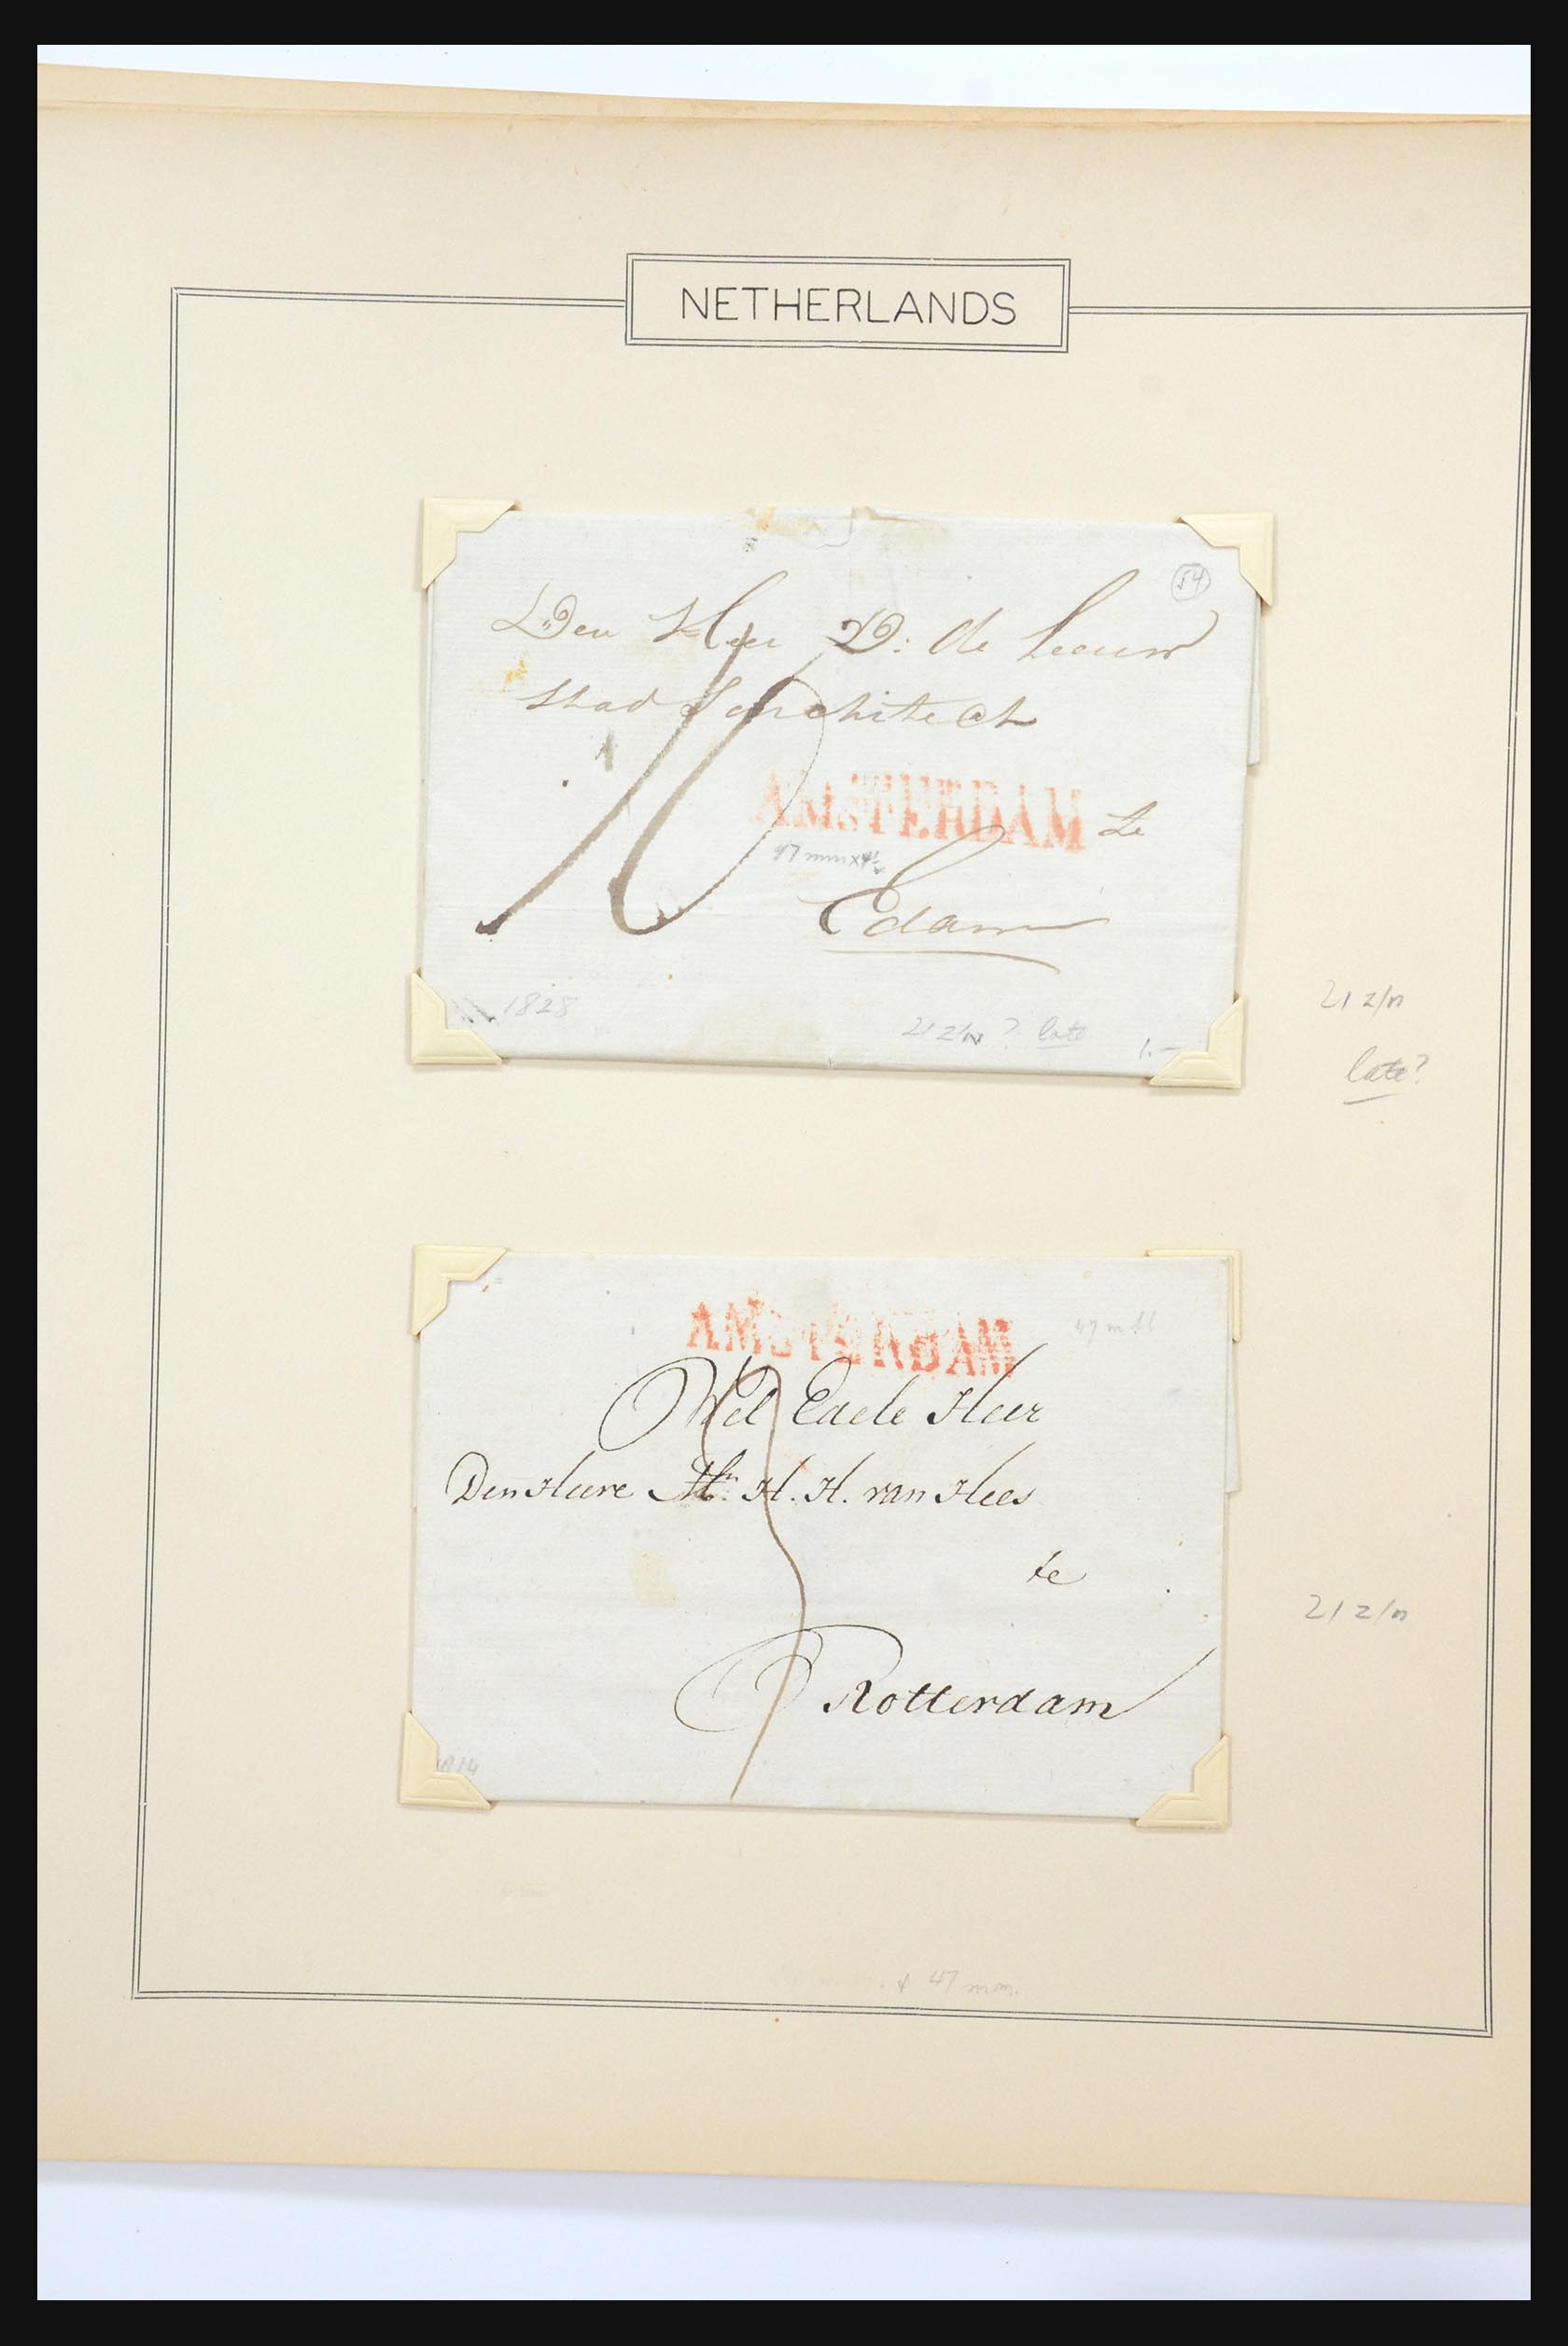 NETHERLANDS
54
Den Heer D: de Leeuw
Stads architect
10
AMSTERDAM te
47 mm x 4½
Edam
1828
21 z/n ? late
1.-
21 z/n
late?
AMSTERDAM
47 m
Wel Edele Heer
Den Heere Mr. H. H. van Hees
te
Rotterdam
21 z/n
1814
47 mm.